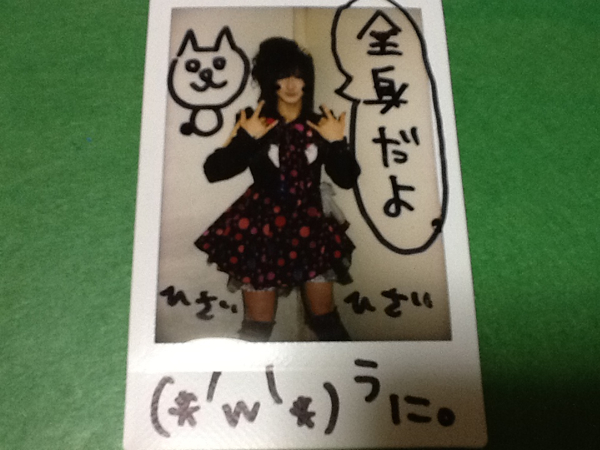 全身だよ
ひさい ひさい
(*'w'*)うに。